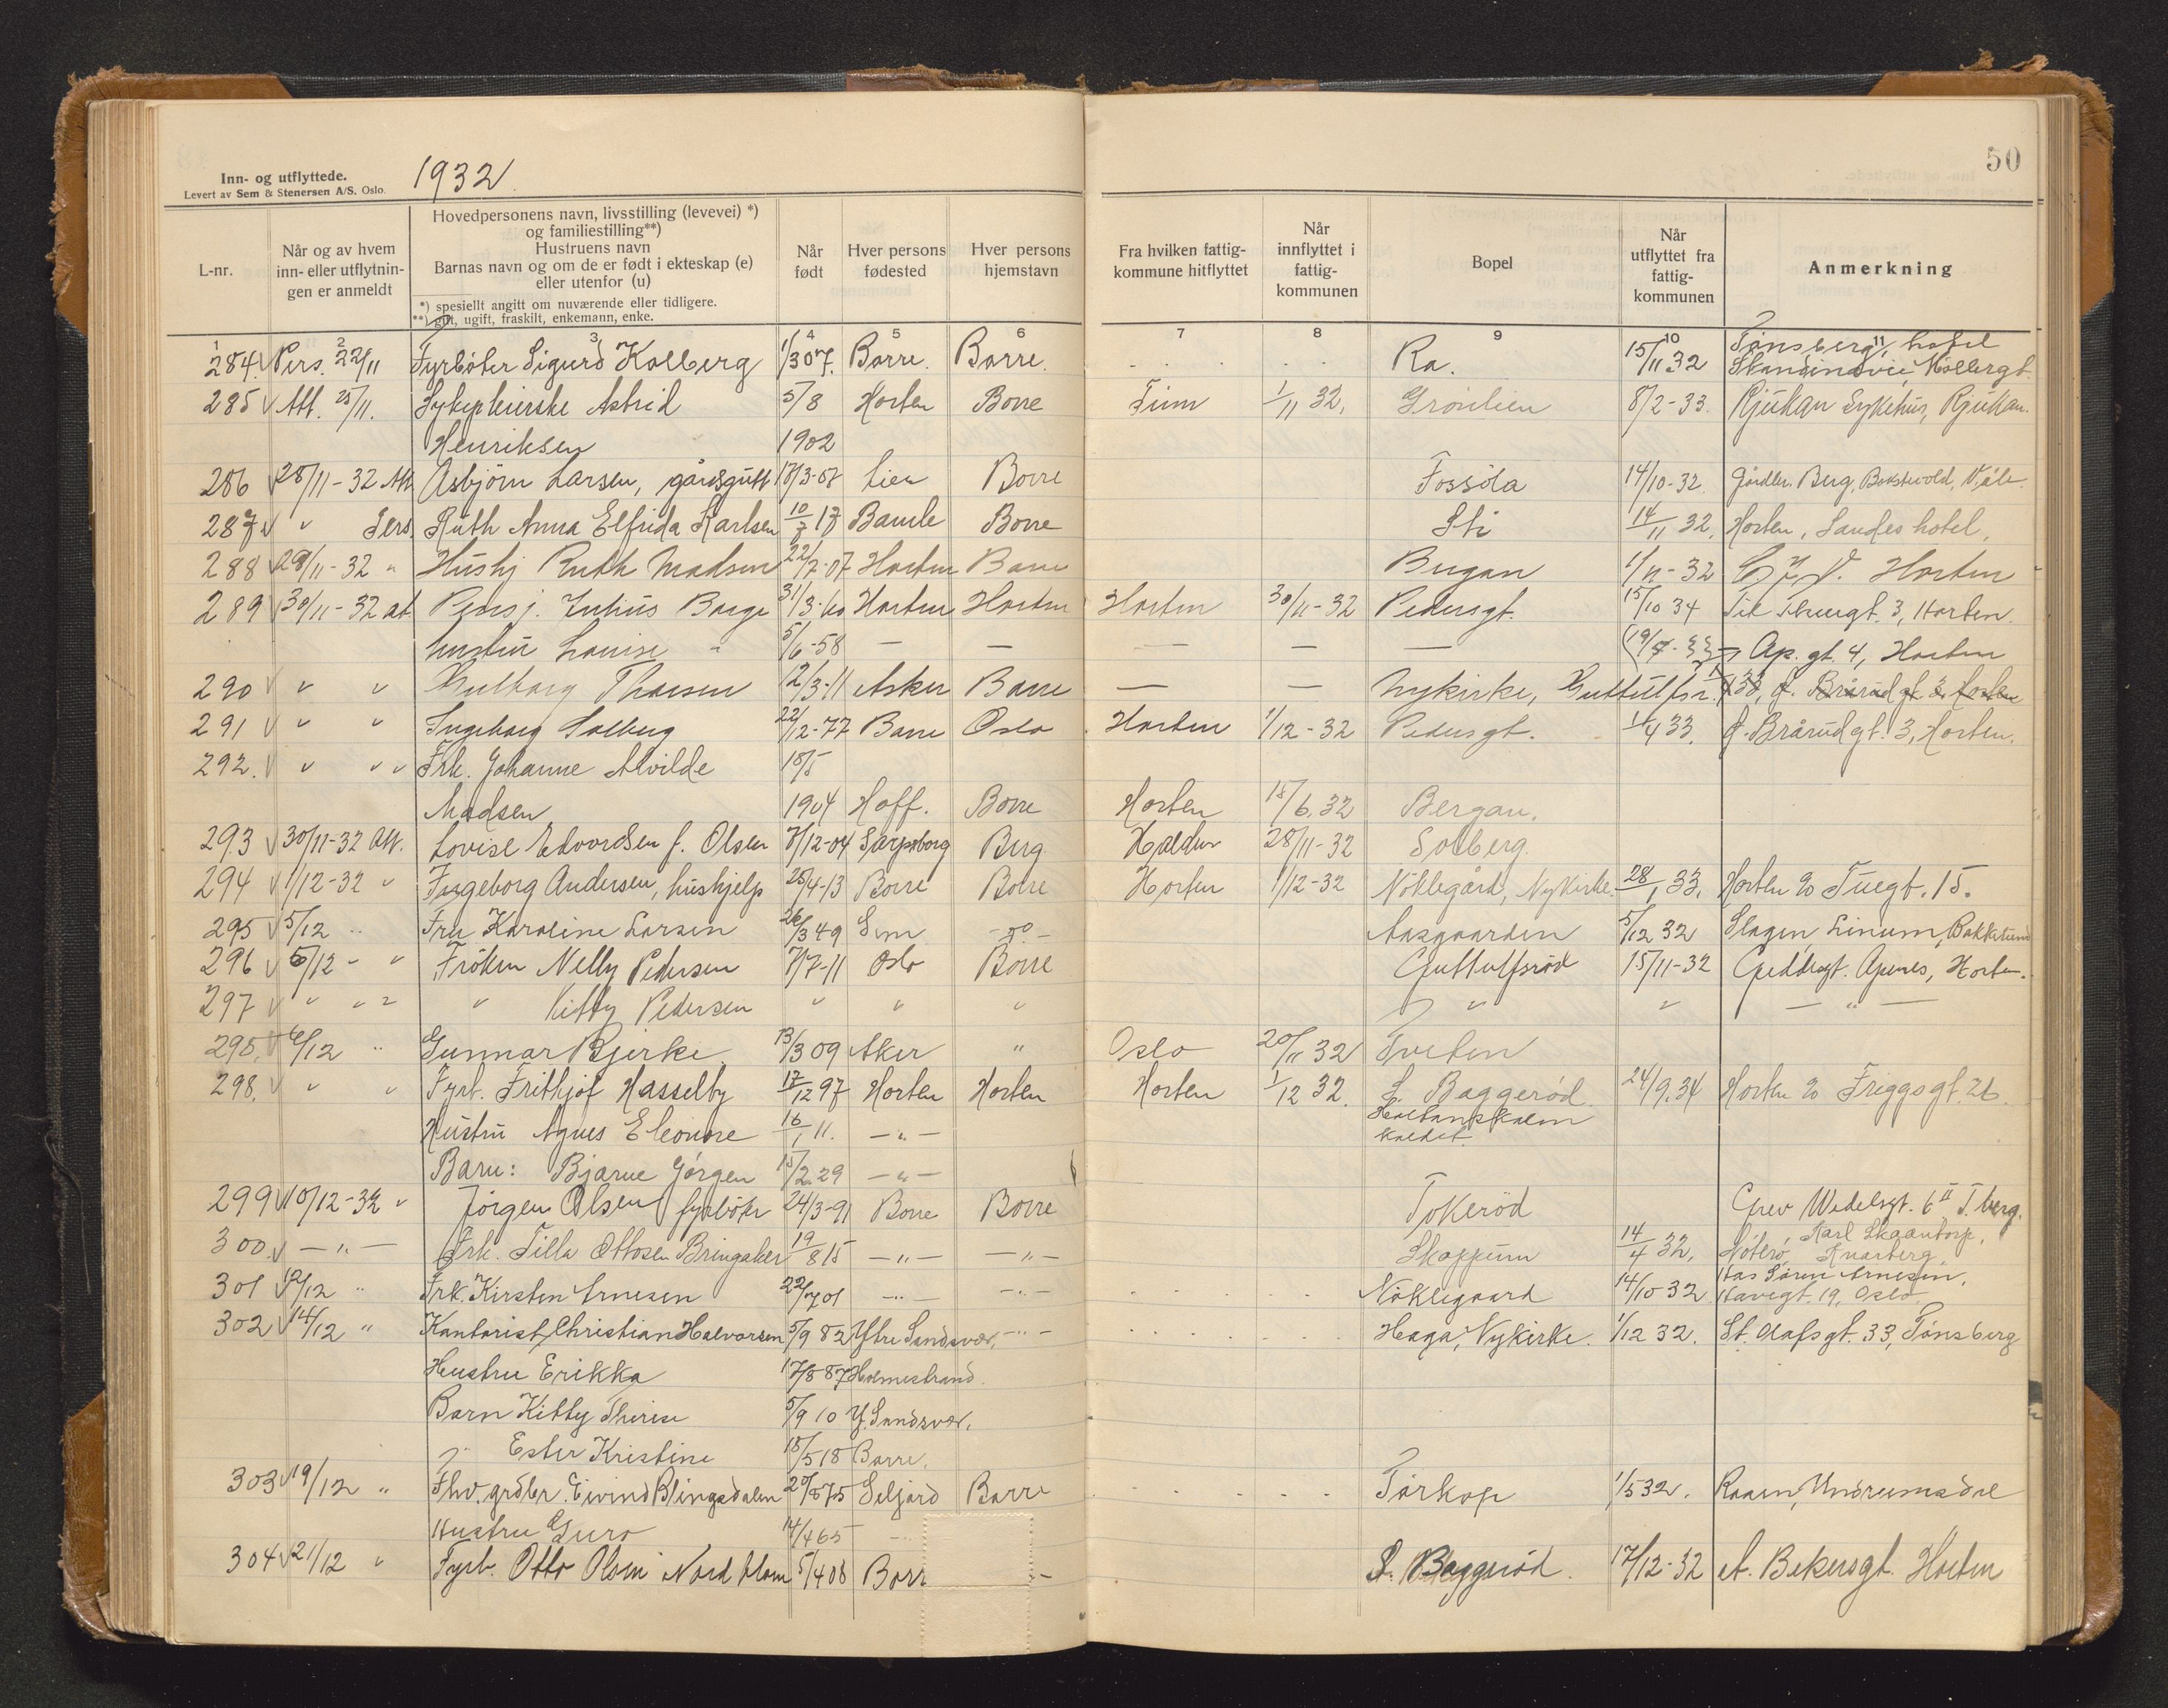 50
Inn- og utflyttede. 1932
Levert av Sem & Stenersen A/S. Oslo.
L-nr.
Når og av hvem inn- eller utflytnin-gen er anmeldt
Hovedpersonens navn, livsstilling (levevei) *) og familiestilling**)
Hustruens navn
Barnas navn og om de er født i ekteskap (e) eller utenfor (u)
*) spesiellt angitt om nuværende eller tidligere.
**) gift, ugift, fraskilt, enkemann, enke.
Når født
Hver persons fødested
Hver persons hjemstavn
Fra hvilken fattig-kommune hitflyttet
Når innflyttet i fattig-kommunen
Bopel
Når utflyttet fra fattig-kommunen
Anmerkning
1 2 3 4 5 6 7 8 9 10 11
284 Pers. 22/11 Fyrbøter Sigurd Kolberg 1/3 07. Borre. Borre. Ra. 15/11 32 Tønsberg, hotel Skandinavie, Møllergt.
285 Att. 25/11. Sykepleierske Astrid 5/8 Horten Borre Tinn 1/11 32. Grønlien 8/2-33. Rjukan Sykehus, Rjukan.
Henriksen 1902
286 28/11-32 Att. Asbjørn Larsen, gårdsgutt 17/3-07 Lier Borre Fossöla 14/10-32. Gårdbr. Berg, Våle.
287 " Pers. Ruth Anna Elfrida Karlsen 10/7 17 Bamle Borre Sti 14/11 32. Horten, Sandes hotel.
288 29/11-32 " Hushj Ruth Madsen 22/7-07 Horten Borre Bergan 1/11-32 Horten
289 30/11-32 at. Pensj. Julius Borge 31/3-60 Horten Horten Horten 30/11-32 Pedersgt. 15/10 34 Til 3, Horten.
hustru Louise " 5/6-58 — — — — — Ap. gt. 4, Horten
290 " " Thorsen 12/3-11 Asker Borre — — Nykirke,
291 " " Ingeborg Solberg 22/12-77 Borre Oslo Horten 1/12-32 Pedersgt. 1/4 33. Brårudgt. 3, Horten.
292. " " " Frk. Johanne Alvilde 15/5
Madsen 1904 Hoff. Borre Horten 15/6.32 Bergan.
293 30/11-32 Att. Lovise Edvardsen f. Olsen 7/12-04 Sarpsborg Berg Halden 28/11-32 Solberg.
294 1/12-32 " Ingeborg Andersen, hushjelp 25/4-13 Borre Borre Horten 1/12-32 Nöklegård, Nykirke. 28/1 33. Horten Tuegt. 15.
295 5/12 " Fru Karoline Larsen 26/3 49 Sem -"- Aasgaarden 5/12 32 Slagen, Linum, Bakketun
296 6/12 " " Frøken Nelly Pedersen 7/7-11 Oslo Borre Guttulfsrød 15/11-32 Apenes, Horten.
297 " " " " Kitty Pedersen " " " " " — " —
295. 6/12 " Gunnar Bjerke 13/3 09 Aker " Oslo 20/11 32 Tveten
298. " " Fyrb. Frithjof Hasselby 17/12 97 Horten Horten Horten 1/12 32. L. Baggerød. 24/9.34 Horten Friggsgt. 26.
Hustru Agnes Eleonore 16/1 11. — " —
Barn: Bjarne Jørgen 15/2.29 — " —
299 10/12-32 " Jörgen Olsen fyrböter 24/3-91 Borre Borre Tokerød Grev Wedelsgt. 6 II T.berg.
300. — " — Frk. Tilla Ottosen Bringaker 19/8 15 — " — — " — Skoppum 14/4 32. Karl Skaantorp, Nøterø, Knarberg
301 12/12 " Frk. Kirsten Arnesen 22/7 01 — " — — " — Nøklegaard 14/10 32 Hos Sørine Arnesen, 19, Oslo
302 14/12 " Kontorist Christian Halvorsen 5/9 82 Ytre Sandsvær, — " — Haga, Nykirke. 1/12 32. St. Olafsgt. 33, Tønsberg
Hustru Erikka 17/8 87 Holmestrand.
Barn Kitty Therese 5/9 10 Y. Sandsvær.
" Ester Kristine 18/5 18 Borre.
303 19/12 " Fhv. grdbr. Eivind Blingsdalen 20/8 75 Seljord Borre Torkop 1/5 32. Raaen, Undrumsdal
Hustru Guro 14/4 65
304 21/12 " Fyrb. Otto Olsen Nordblom 5/4 08 Borr S. Baggerød. 17/12-32 Bekersgt. Horten